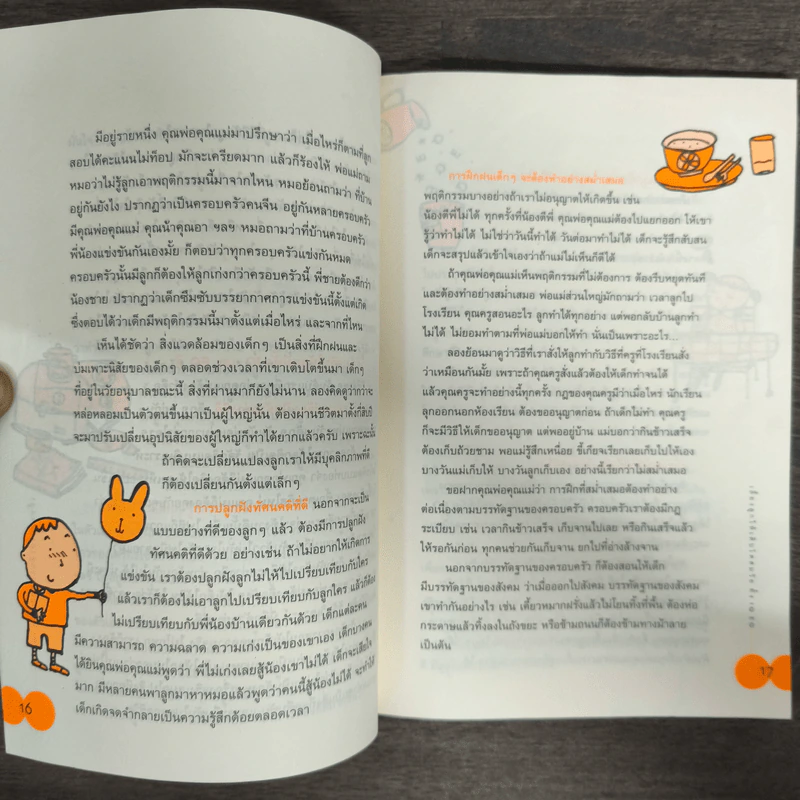 มีอยู่รายหนึ่ง คุณพ่อคุณแม่มาปรึกษาว่า เมื่อไหร่ก็ตามที่ลูก
สอบได้คะแนนไม่ท็อป มักจะเครียดมาก แล้วก็ร้องไห้ พ่อแม่ถาม
หมอว่าไม่รู้ลูกเอาพฤติกรรมนี้มาจากไหน หมอย้อนถามว่า ที่บ้าน
อยู่กันยังไง ปรากฏว่าเป็นครอบครัวคนจีน อยู่กันหลายครอบครัว
มีคุณพ่อคุณแม่ คุณน้าคุณอา ฯลฯ หมอถามว่าที่บ้านครอบครัว
พี่น้องแข่งขันกันเองมั้ย ก็ตอบว่าทุกครอบครัวแข่งกันหมด
ครอบครัวนั้นมีลูกก็ต้องให้ลูกเก่งกว่าครอบครัวนี้ พี่ชายต้องดีกว่า
น้องชาย ปรากฏว่าเด็กซึมซับบรรยากาศการแข่งขันนี้ตั้งแต่เกิด
ซึ่งตอบได้ว่าเด็กมีพฤติกรรมนี้มาตั้งแต่เมื่อไหร่ และจากที่ไหน
เห็นได้ชัดว่า สิ่งแวดล้อมของเด็กๆ เป็นสิ่งที่ฝึกฝนและ
บ่มเพาะนิสัยของเด็กๆ ตลอดช่วงเวลาที่เขาเติบโตขึ้นมา เด็กๆ
ที่อยู่ในวัยอนุบาลขณะนี้ สิ่งที่ผ่านมาก็ยังไม่นาน ลองคิดดูว่ากว่าจะ
หล่อหลอมเป็นตัวตนขึ้นมาเป็นผู้ใหญ่นั้น ต้องผ่านชีวิตมาตั้งกี่สิบปี
จะมาปรับเปลี่ยนอุปนิสัยของผู้ใหญ่ก็ทำได้ยากแล้วครับ เพราะฉะนั้น
ถ้าคิดจะเปลี่ยนแปลงลูกเราให้มีบุคลิกภาพที่ดี
ก็ต้องเปลี่ยนกันตั้งแต่เด็กๆ
การปลูกฝังทัศนคติที่ดี นอกจากจะเป็น
แบบอย่างที่ดีของลูกๆ แล้ว ต้องมีการปลูกฝัง
ทัศนคติที่ดีด้วย อย่างเช่น ถ้าไม่อยากให้เกิดการ
แข่งขัน เราต้องปลูกฝังลูกไม่ให้ไปเปรียบเทียบกับใคร
แล้วเราก็ต้องไม่เอาลูกไปเปรียบเทียบกับลูกใคร แล้วก็ต้อง
ไม่เปรียบเทียบกับพี่น้องบ้านเดียวกันด้วย เด็กแต่ละคน
มีความสามารถ ความฉลาด ความเก่งเป็นของเขาเอง เด็กบางคน
ได้ยินคุณพ่อคุณแม่พูดว่า พี่ไม่เก่งเลยสู้น้องเขาไม่ได้ เด็กจะเสียใจ
มาก มีหลายคนพาลูกมาหาหมอแล้วพูดว่าคนนี้สู้น้องไม่ได้ จะทำให้
เด็กเกิดจดจำกลายเป็นความรู้สึกด้อยตลอดเวลา
16
การฝึกฝนเด็กๆ จะต้องทำอย่างสม่ำเสมอ
พฤติกรรมบางอย่างถ้าเราไม่อนุญาตให้เกิดขึ้น เช่น
น้องตีพี่ไม่ได้ ทุกครั้งที่น้องตีพี่ คุณพ่อคุณแม่ต้องไปแยกออก ให้เขา
รู้ว่าทำไม่ได้ ไม่ใช่ว่าวันนี้ทำได้ วันต่อมาทำไม่ได้ เด็กจะรู้สึกสับสน
เด็กจะสรุปแล้วเข้าใจเองว่าถ้าแม่ไม่เห็นก็ตีได้
ถ้าคุณพ่อคุณแม่เห็นพฤติกรรมที่ไม่ต้องการ ต้องรีบหยุดทันที
และต้องทำอย่างสม่ำเสมอ พ่อแม่ส่วนใหญ่มักถามว่า เวลาลูกไป
โรงเรียน คุณครูสอนอะไร ลูกทำได้ทุกอย่าง แต่พอกลับบ้านลูกทำ
ไม่ได้ ไม่ยอมทำตามที่พ่อแม่บอกให้ทำ นั่นเป็นเพราะอะไร...
ลองย้อนมาดูว่าวิธีที่เราสั่งให้ลูกทำกับวิธีที่ครูที่โรงเรียนสั่ง
ว่าเหมือนกันมั้ย เพราะถ้าคุณครูสั่งแล้วต้องให้เด็กทำจนได้
แล้วคุณครูจะทำอย่างนี้ทุกครั้ง กฎของคุณครูมีว่าเมื่อไหร่ นักเรียน
ลุกออกนอกห้องเรียน ต้องขออนุญาตก่อน ถ้าเด็กไม่ทำ คุณครู
ก็จะมีวิธีให้เด็กขออนุญาต แต่พออยู่บ้าน แม่บอกว่ากินข้าวเสร็จ
ต้องเก็บถ้วยชาม พอแม่รู้สึกเหนื่อย ขี้เกียจเรียกเลยเก็บไปให้เอง
บางวันแม่เก็บให้ บางวันลูกเก็บเอง อย่างนี้เรียกว่าไม่สม่ำเสมอ
ขอฝากคุณพ่อคุณแม่ว่า การฝึกที่สม่ำเสมอต้องทำอย่าง
ต่อเนื่องตามบรรทัดฐานของครอบครัว ครอบครัวเราต้องมีกฎ
ระเบียบ เช่น เวลากินข้าวเสร็จ เก็บจานไปเลย หรือกินเสร็จแล้ว
ให้รอกันก่อน ทุกคนช่วยกันเก็บจาน ยกไปที่อ่างล้างจาน
นอกจากบรรทัดฐานของครอบครัว ก็ต้องสอนให้เด็ก
มีบรรทัดฐานของสังคม ว่าเมื่อออกไปสังคม บรรทัดฐานของสังคม
เขาทำกันอย่างไร เช่น เคี้ยวหมากฝรั่งแล้วไม่โยนทิ้งที่พื้น ต้องห่อ
กระดาษแล้วทิ้งลงในถังขยะ หรือข้ามถนนก็ต้องข้ามทางม้าลาย
เป็นต้น
17